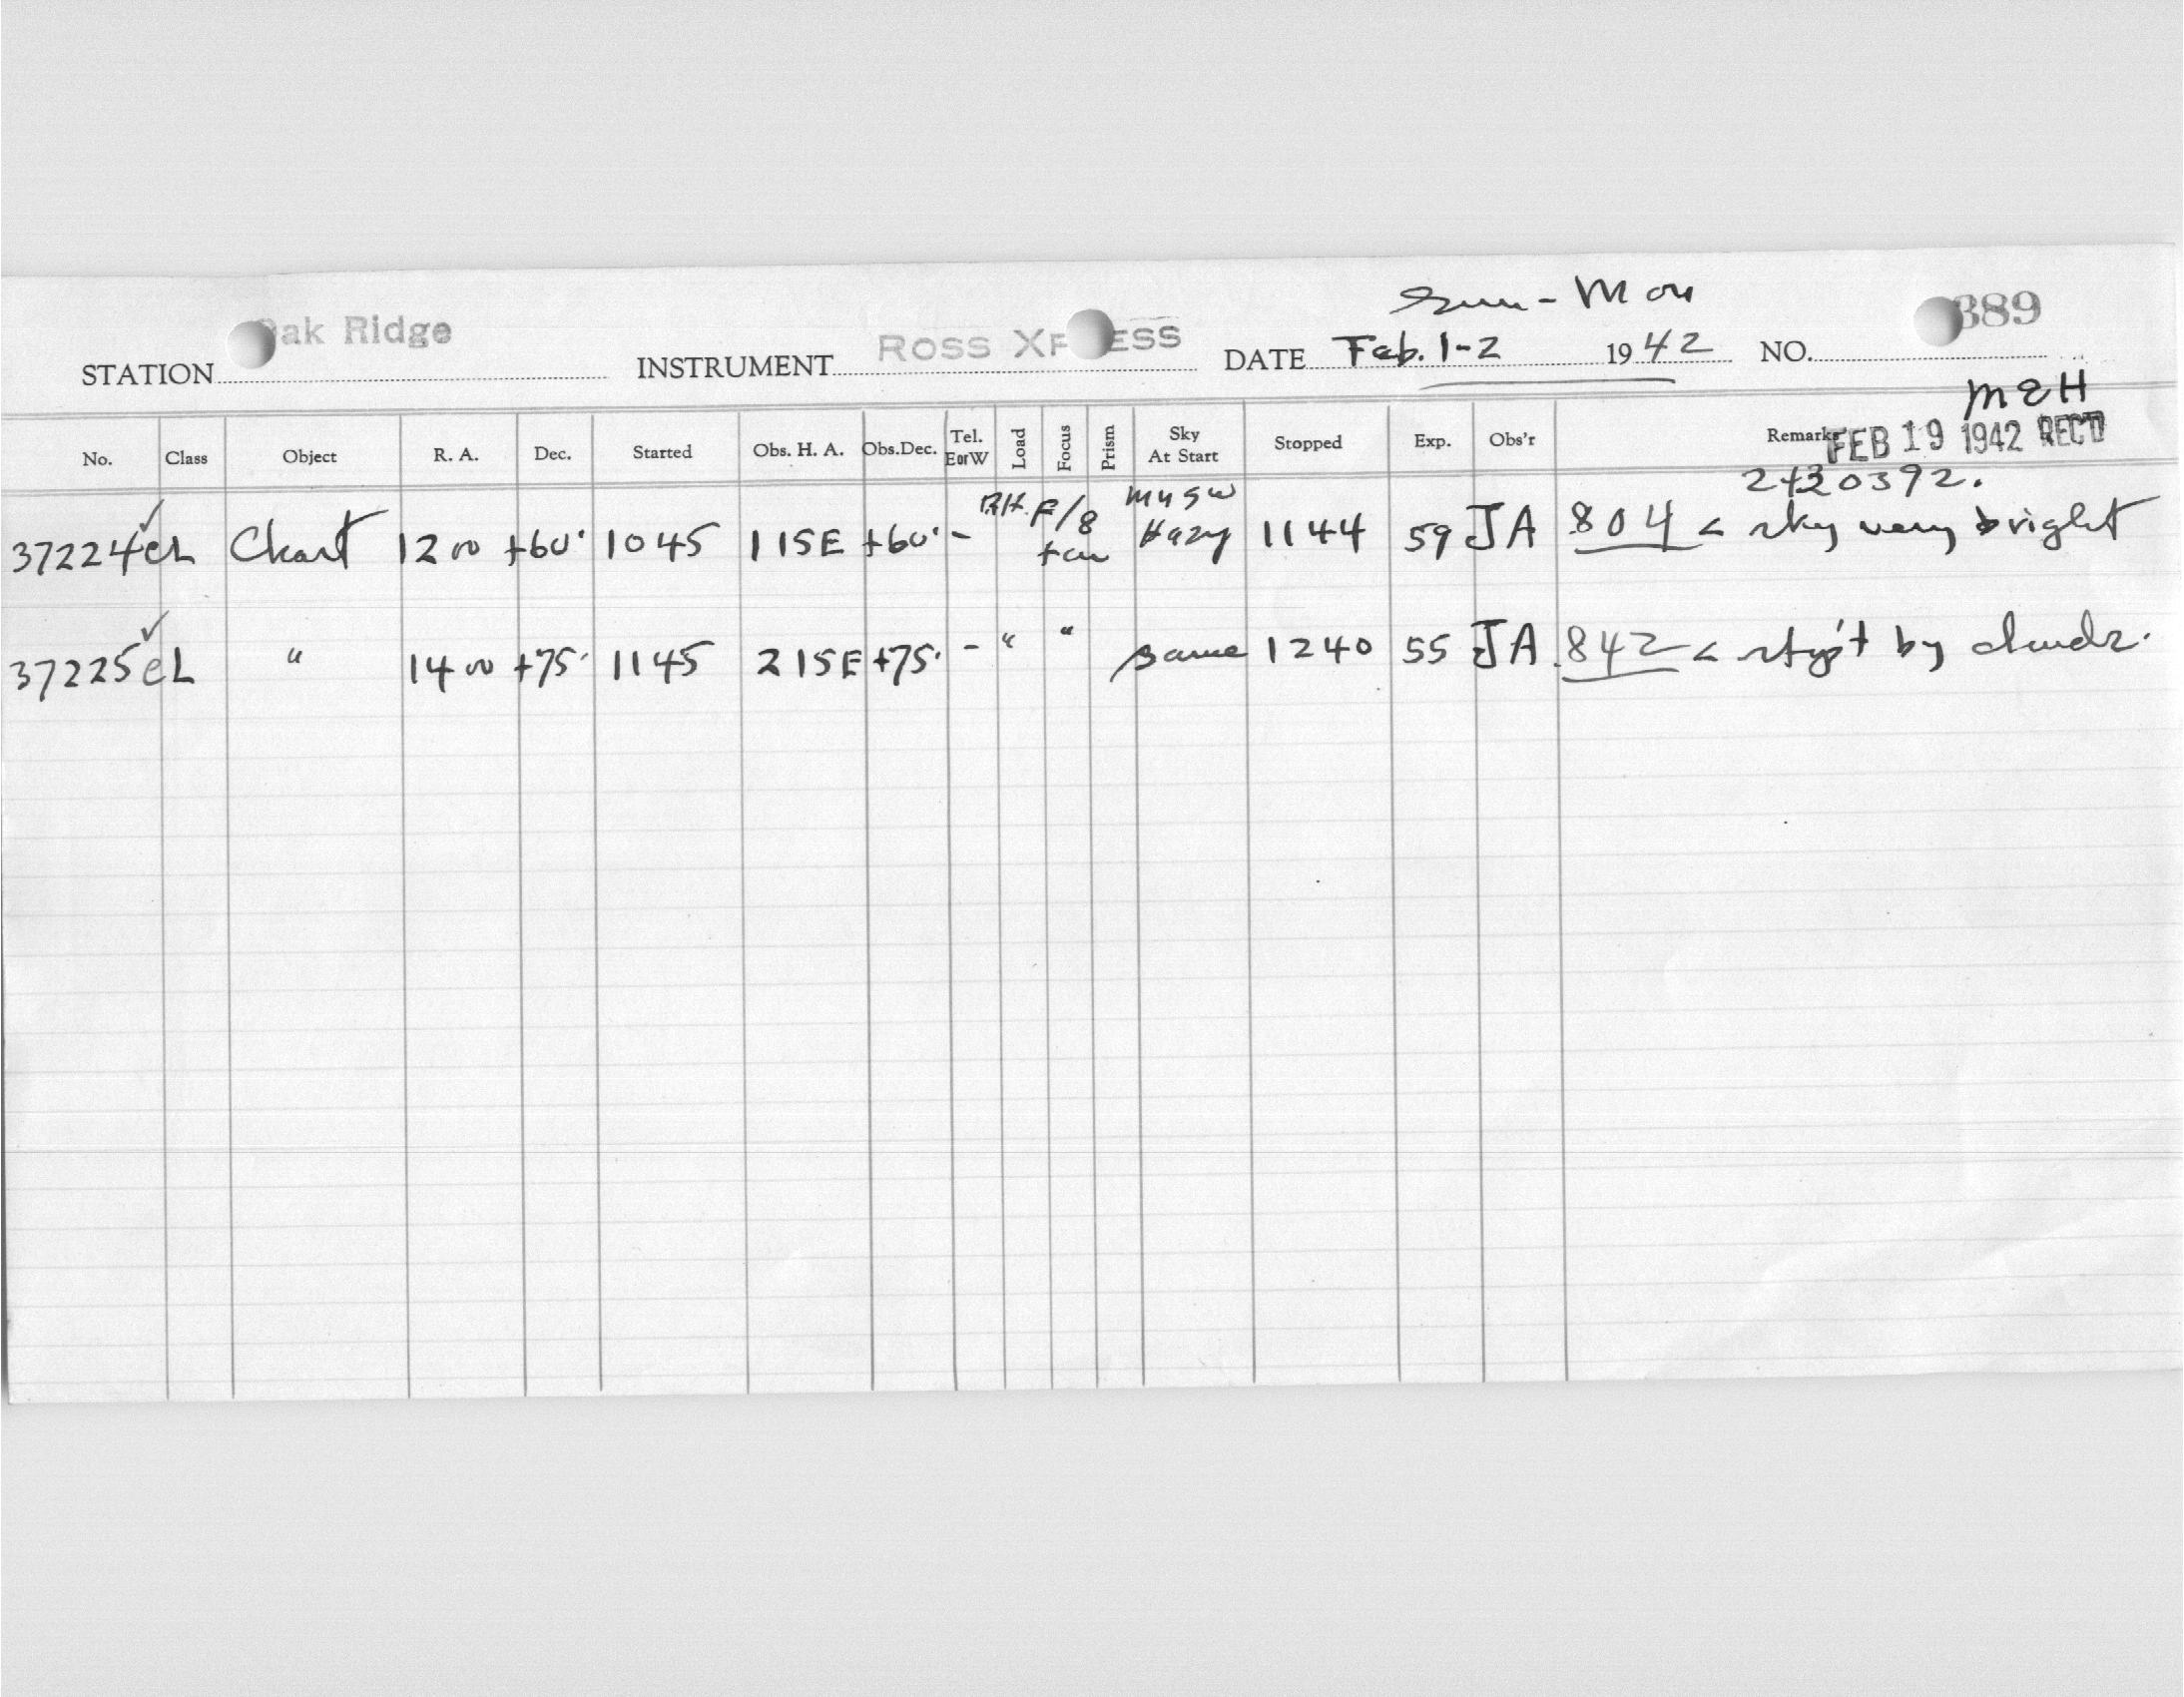 Sun - Mon
STATION Oak Ridge INSTRUMENT ROSS XPRESS DATE Feb. 1-2 1942 NO. 389
M & H
No. Class Object R. A. Dec. Started Obs. H. A. Obs.Dec. Tel. EorW Load Focus Prism Sky At Start Stopped Exp. Obs'r Remarks FEB 19 1942 REC'D
2430392.
37224 ✓ eL Chart 12 00 +60° 1045 1 15E +60° - F/8 Hazy 1144 59 JA .804 < sky very bright
37225 ✓ eL " 14 00 +75° 1145 2 15E +75° - " " same 1240 55 JA .842 < stop't by clouds.